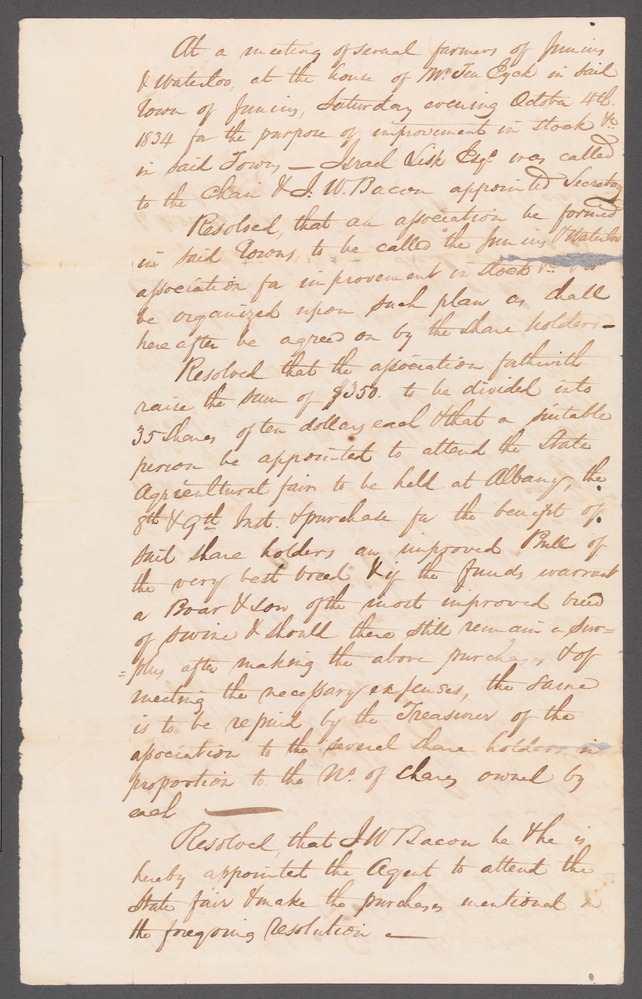 At a meeting of several farmers of Junius
& Waterloo, at the house of Mr Ten Eyck in said
Town of Junius, Saturday evening October 4th
1834 for the purpose of improvement in stock &c
in said Towns — Israel Lisk Esqr was called
to the Chair & J. W. Bacon appointed Secretary
Resolved, that an association be formed
in said Towns, to be called the Junius & Waterloo
association for improvement in stock &c
be organized upon such plan as shall
hereafter be agreed on by the share holders —
Resolved that the association forthwith
raise the sum of $350. to be divided into
35 Shares of ten dollars each & that a suitable
person be appointed to attend the State
Agricultural fair to be held at Albany, the
8th & 9th Inst. & purchase for the benefit of
said share holders an improved Bull of
the very best breed & if the funds warrant
a Boar & sow of the most improved breed
of swine & should there still remain a sur=
=plus after making the above purchases, & of
meeting the necessary expenses, the same
is to be repaid by the Treasurer of the
association to the several share holders in
proportion to the No. of Shares owned by
each —
Resolved, that J W Bacon be & he is
hereby appointed the Agent to attend the
State fair & make the purchases mentioned in
the foregoing Resolution —